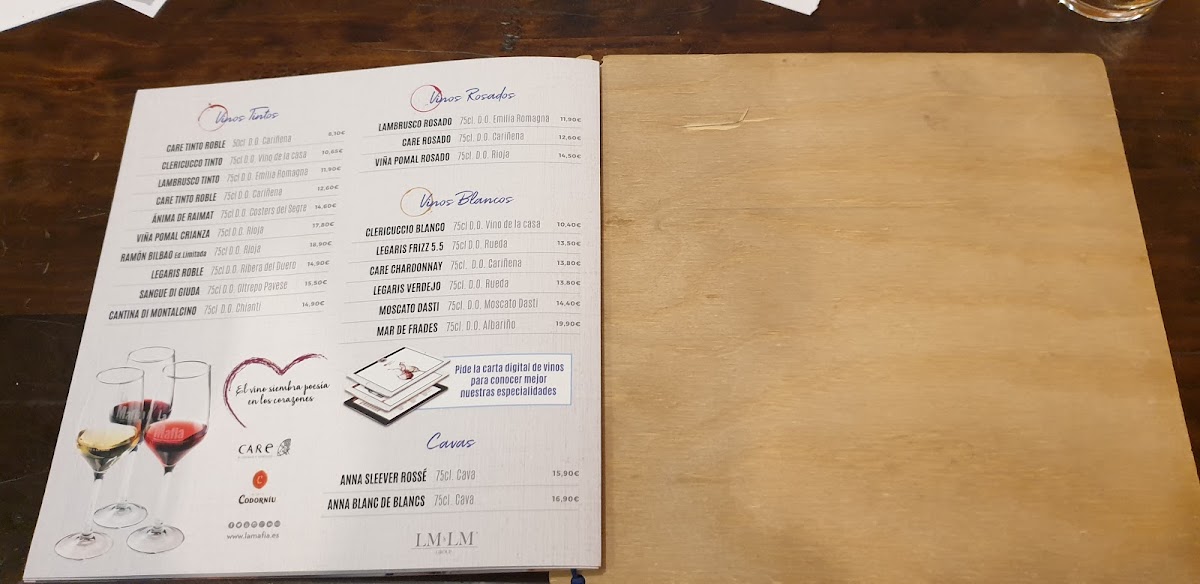 Vinos Tintos
CARE TINTO ROBLE 50cl D.O. Cariñena 9,10€
CLERICUCCO TINTO 75cl D.O. Vino de la casa 10,65€
LAMBRUSCO TINTO 75cl D.O. Emilia Romagna 11,90€
CARE TINTO ROBLE 75cl D.O. Cariñena 12,60€
ÁNIMA DE RAIMAT 75cl D.O. Costers del Segre 14,60€
VIÑA POMAL CRIANZA 75cl D.O. Rioja 17,80€
RAMÓN BILBAO Ed. Limitada 75cl D.O. Rioja 18,90€
LEGARIS ROBLE 75cl D.O. Ribera del Duero 14,90€
SANGUE DI GIUDA 75cl D.O. Oltrepo Pavese 15,50€
CANTINA DI MONTALCINO 75cl D.O. Chianti 14,90€
Vinos Rosados
LAMBRUSCO ROSADO 75cl. D.O. Emilia Romagna 11,90€
CARE ROSADO 75cl. D.O. Cariñena 12,60€
VIÑA POMAL ROSADO 75cl. D.O. Rioja 14,50€
Vinos Blancos
CLERICUCCIO BLANCO 75cl D.O. Vino de la casa 10,40€
LEGARIS FRIZZ 5.5 75cl. D.O. Rueda 13,50€
CARE CHARDONNAY 75cl. D.O. Cariñena 13,80€
LEGARIS VERDEJO 75cl. D.O. Rueda 13,80€
MOSCATO DASTI 75cl. D.O. Moscato Dasti 14,40€
MAR DE FRADES 75cl. D.O. Albariño 19,90€
Pide la carta digital de vinos
para conocer mejor
nuestras especialidades
El vino siembra poesía
en los corazones
Mafia
CARE
CODORNÍU
www.lamafia.es
Cavas
ANNA SLEEVER ROSSÉ 75cl. Cava 15,90€
ANNA BLANC DE BLANCS 75cl. Cava 16,90€
LM LM
GROUP